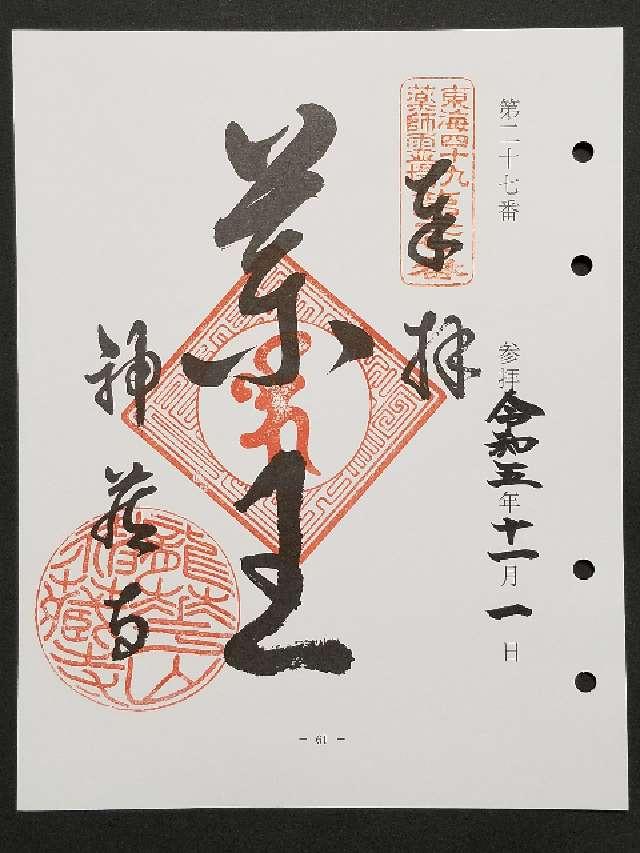 第二十七番
参拝令和五年十一月一日
東海四十九
薬師霊場
奉
拝
薬王
神蔵寺
- 61 -